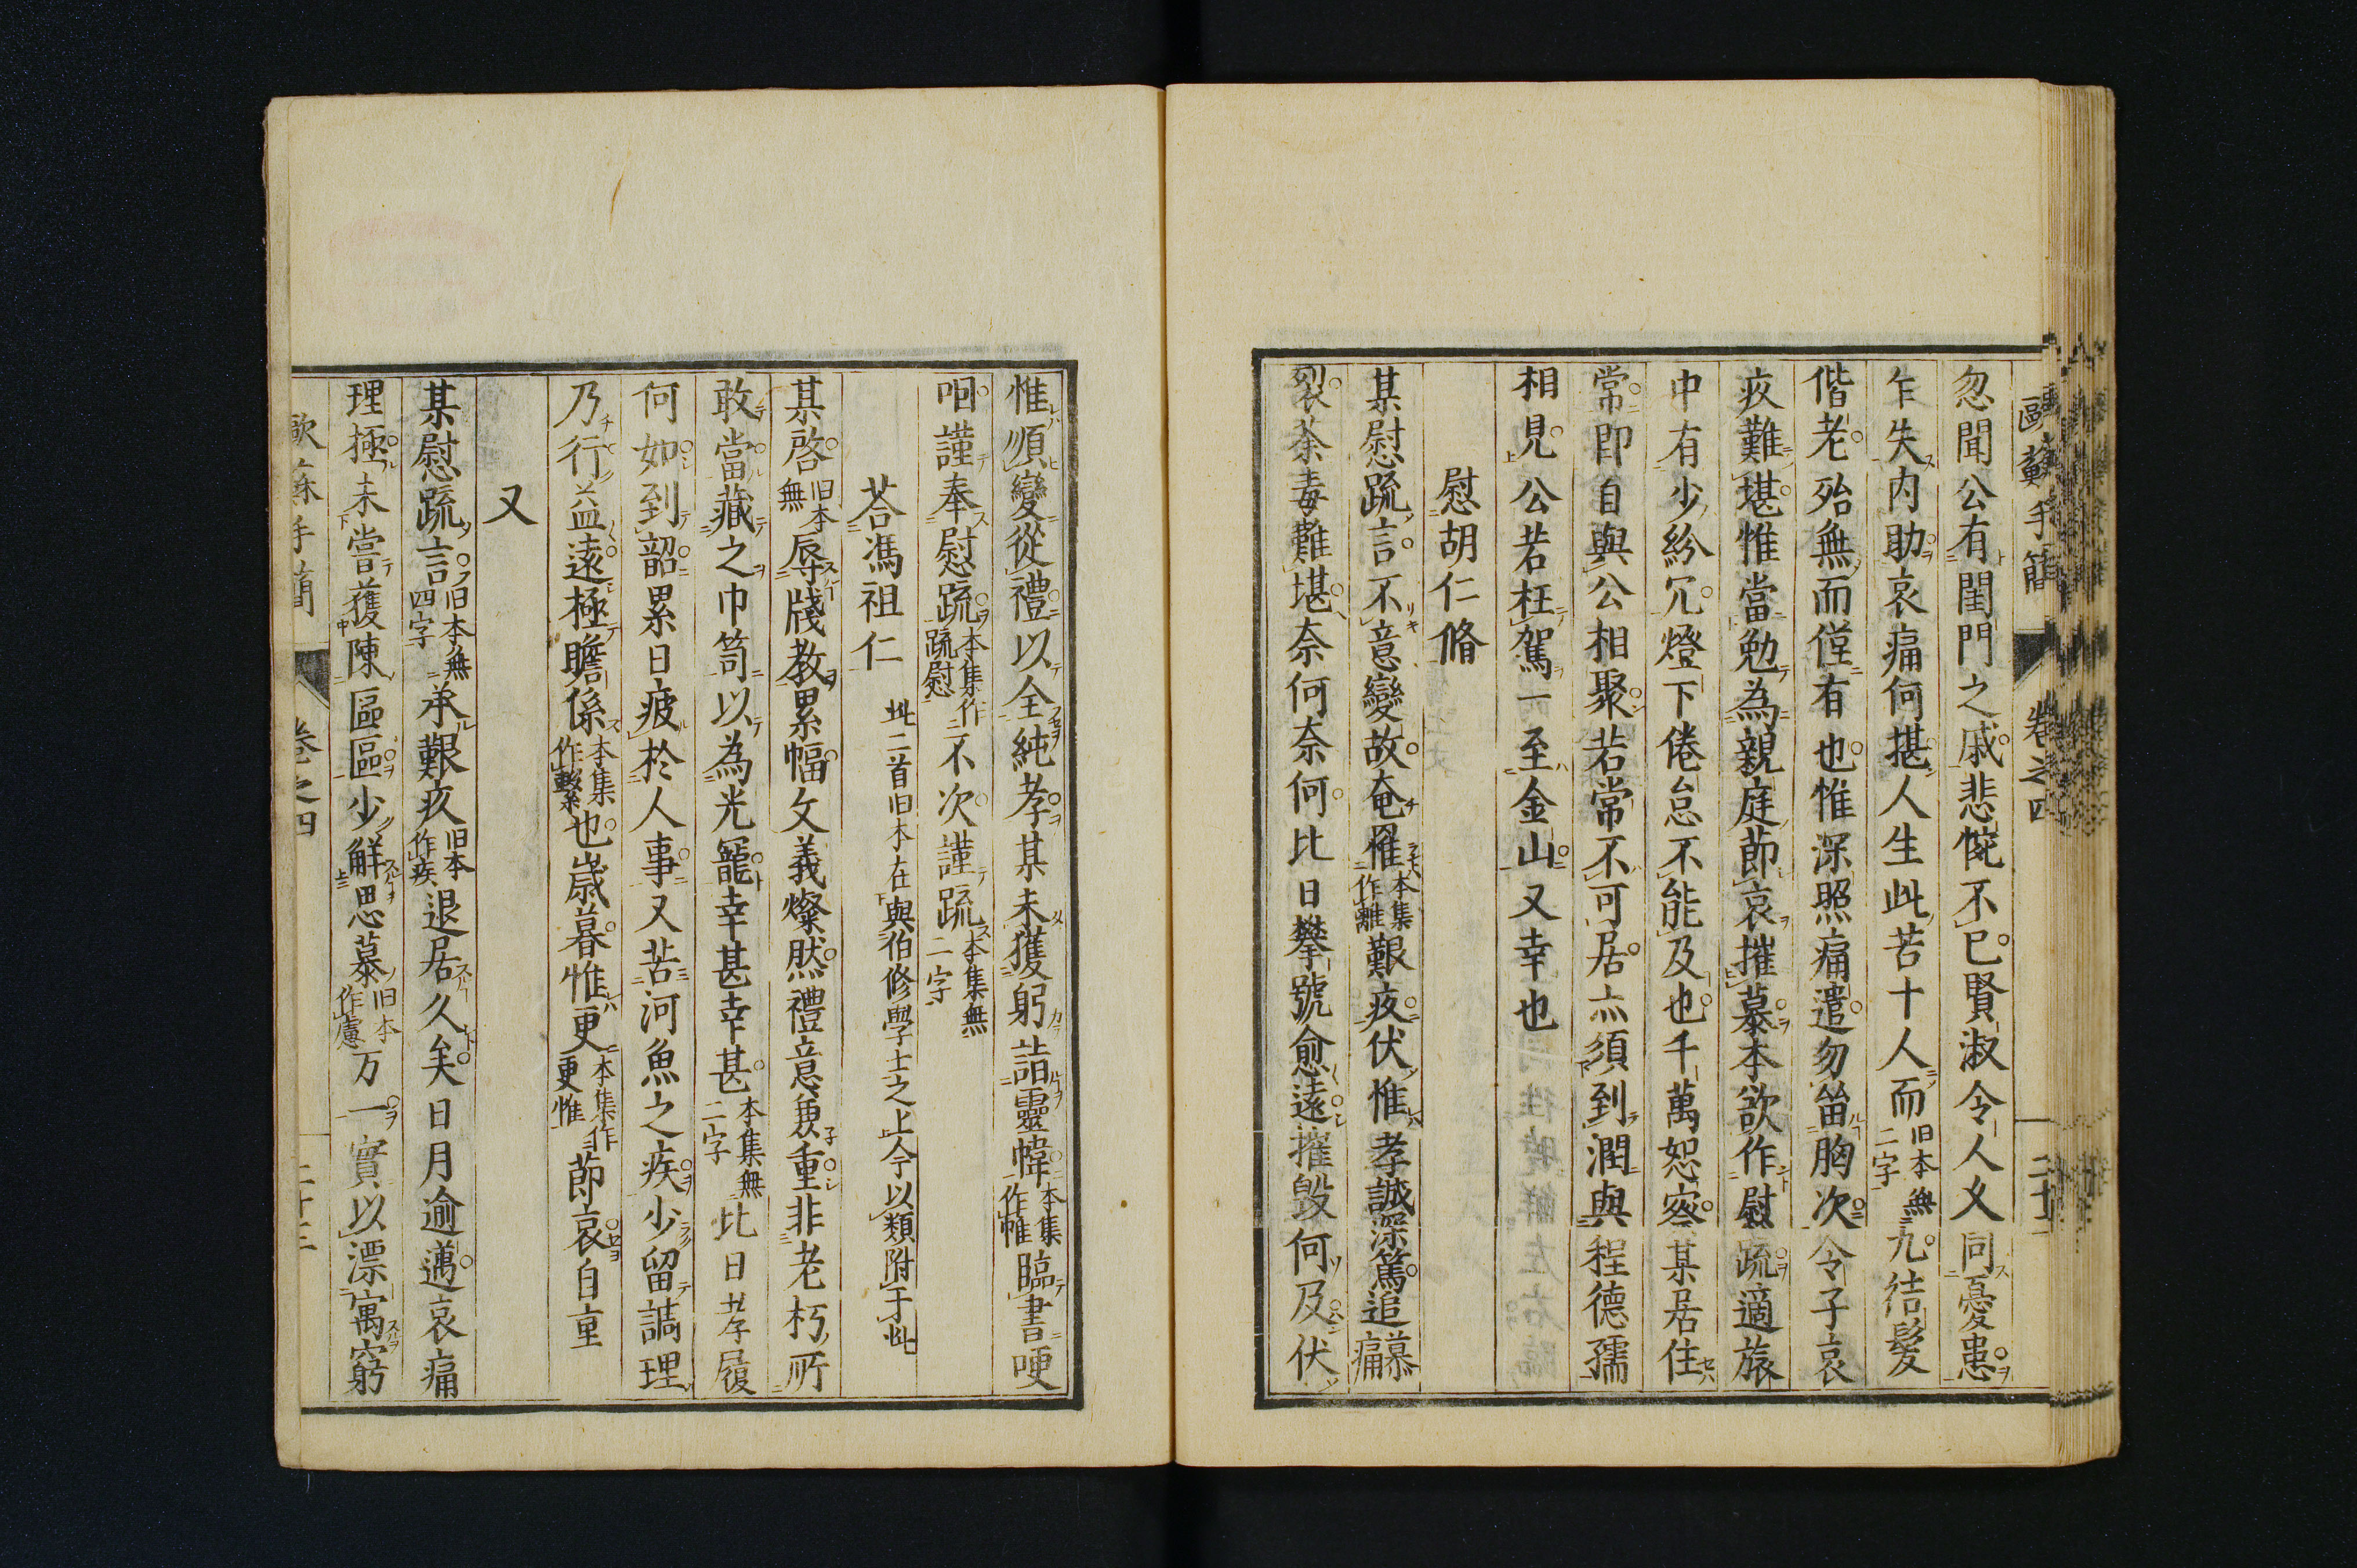 歐蘇手簡 卷之四
忽聞公有閨門之戚悲惋不已賢淑令人久同憂患
乍失内助哀痛何堪人生此苦十人而旧本無二字九結髮
偕老殆無而僅有也惟深照痛遣勿留胸次令子哀
疚難堪惟當勉為親庭節哀摧慕本欲作慰疏適旅
中有少紛冗燈下倦怠不能及也千萬恕察某居住
常即自與公相聚若常不可居亦須到潤與程德孺
相見公若枉駕一至金山又幸也
慰胡仁脩
某慰疏言不意變故奄罹本集作離艱疚伏惟孝誠深篤追慕痛
裂荼毒難堪奈何奈何比日攀號愈遠摧毀何及伏
惟順變從禮以全純孝某未獲躬詣靈幃本集作帷臨書哽
咽謹奉慰疏本集作疏慰不次謹疏本集無二字
荅馮祖仁此二首旧本在與伯修學士之上今以類附于此
某啓旧本無辱牋教累幅文義燦然禮意兼重非老朽所
敢當藏之巾笥以為光寵幸甚幸甚本集無二字比日孝履
何如到韶累日疲於人事又苦河魚之疾少留調理
乃行益遠極瞻係本集作繫也歲暮惟更本集作更惟節哀自重
又
某慰疏言旧本無四字承艱疚旧本作疾退居久矣日月逾邁哀痛
理極未嘗獲陳區區少解思慕旧本作慮万一實以漂寓窮
歐蘇手簡 卷之四 二十二